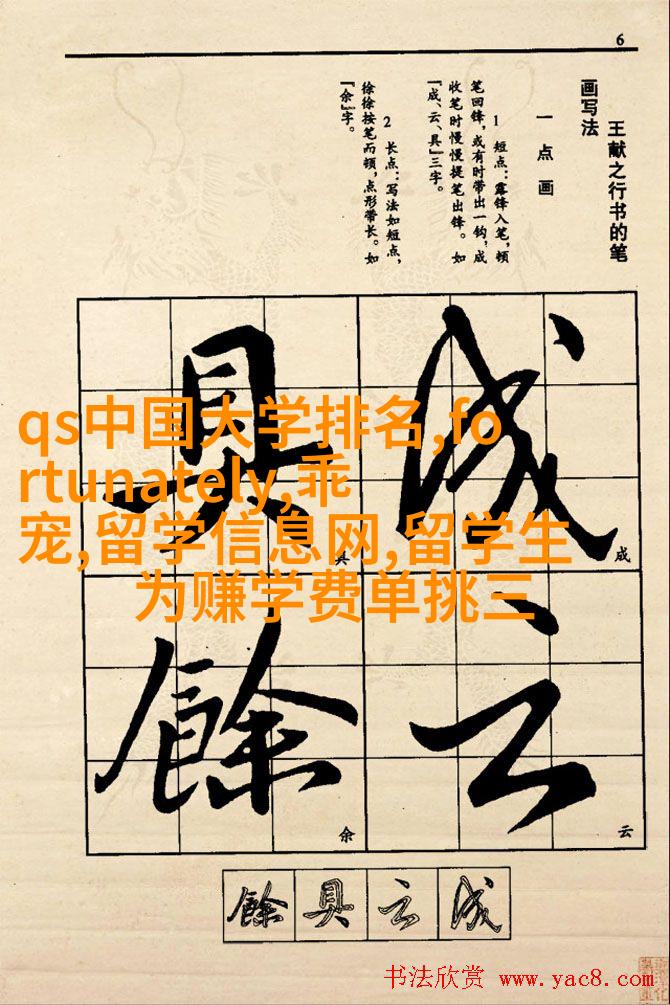 6
王献之行书的笔
画写法
一点画
1 短点：露锋入笔，顿
笔回锋，或有时带出一钩，成
收笔时慢慢提笔出锋。如
『成、云、具』三字。
2 长点：写法如短点，
徐徐按笔而顿，点形带长。如
『余』字。
成
具
云
余
qs中国大学排名,fo
rtunately,乖
宠,留学信息网,留学生
为赚学费单挑三
成
具
云
餘
餘
具
云
成
书法欣赏 www.yac8.com